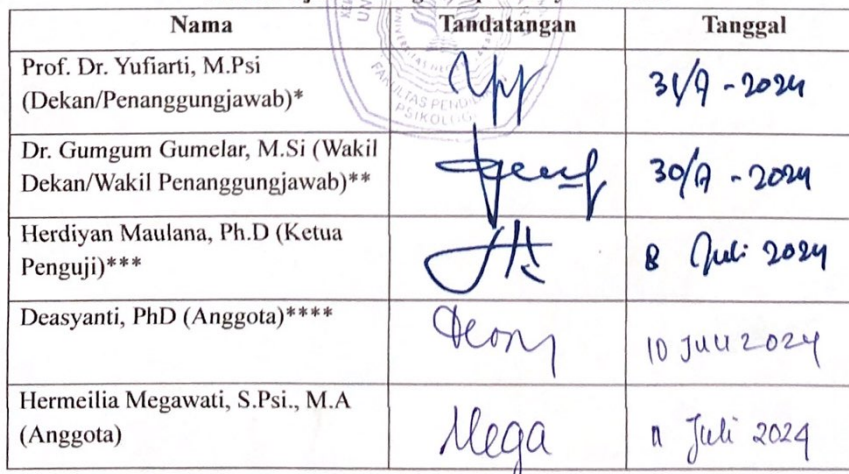 Nama Tandatangan Tanggal
Prof. Dr. Yufiarti, M.Psi
(Dekan/Penanggungjawab)* 31/7 - 2024
Dr. Gumgum Gumelar, M.Si (Wakil
Dekan/Wakil Penanggungjawab)** 30/7 - 2024
Herdiyan Maulana, Ph.D (Ketua
Penguji)*** 8 Juli 2024
Deasyanti, PhD (Anggota)****
10 Juli 2024
Hermeilia Megawati, S.Psi., M.A
(Anggota) Mega 11 Juli 2024